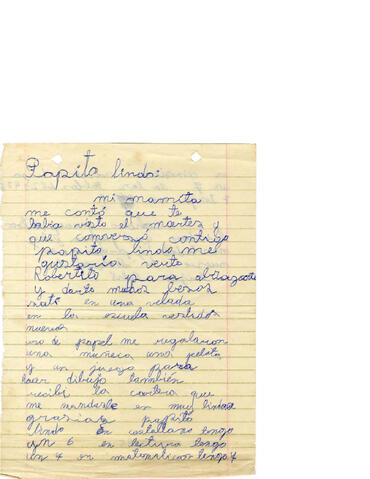 Papito lindo:
mi mamita
me contó que te
habia visto el martes y
que converso contigo
papito lindo me
gustaría verte
Robertito para abrazarte
y darte muchos besos
sali en una velada
en la escuela vestidos
nuevos
uno de papel me regalaron
una muñeca una pelota
y un juego para
hacer dibujo también
recibi la cartera que
me mandaste es muy linda
gracias papito
lindo en castellano tengo
un 6 en lectura tengo
un 7 en matematicas tengo 7